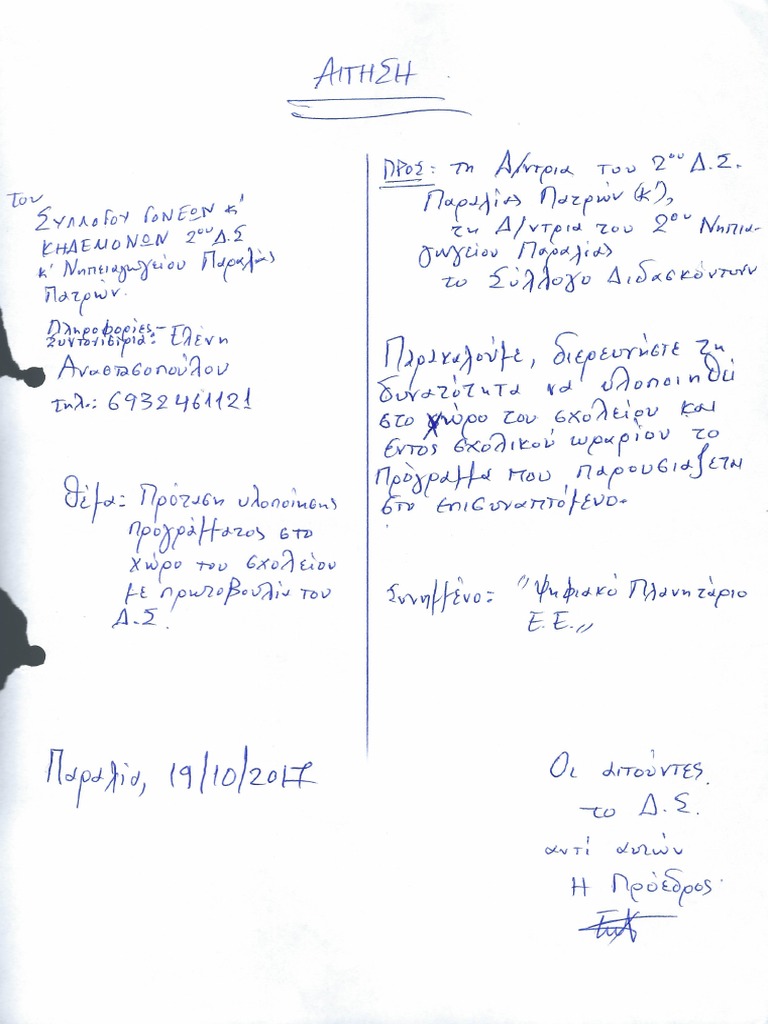 ΑΙΤΗΣΗ
του
ΣΥΛΛΟΓΟΥ ΓΟΝΕΩΝ κ'
ΚΗΔΕΜΟΝΩΝ 2ου Δ.Σ
κ' Νηπειαγωγείου Παραλίας
Πατρών.
Πληροφορίες-
Συντονίστρια: Ελένη
Αναστασοπούλου
τηλ.: 6932461121
Θέμα: Πρόταση υλοποίησης
προγράμματος στο
χώρο του σχολείου
με πρωτοβουλία του
Δ.Σ.
Παραλία, 19/10/2017
ΠΡΟΣ: τη Δ/ντρια του 2ου Δ.Σ.
Παραλίας Πατρών (κ'),
τη Δ/ντρια του 2ου Νηπια-
γωγείου Παραλίας
το Σύλλογο Διδασκόντων
Παρακαλούμε, διερευνήστε τη
δυνατότητα να υλοποιηθεί
στο χώρο του σχολείου και
εντός σχολικού ωραρίου το
πρόγραμμα που παρουσιάζεται
στο επισυναπτόμενο.
Συνημμένο: "Ψηφιακό Πλανητάριο
Ε.Ε."
Οι αιτούντες
το Δ.Σ.
αντί αυτών
Η Πρόεδρος